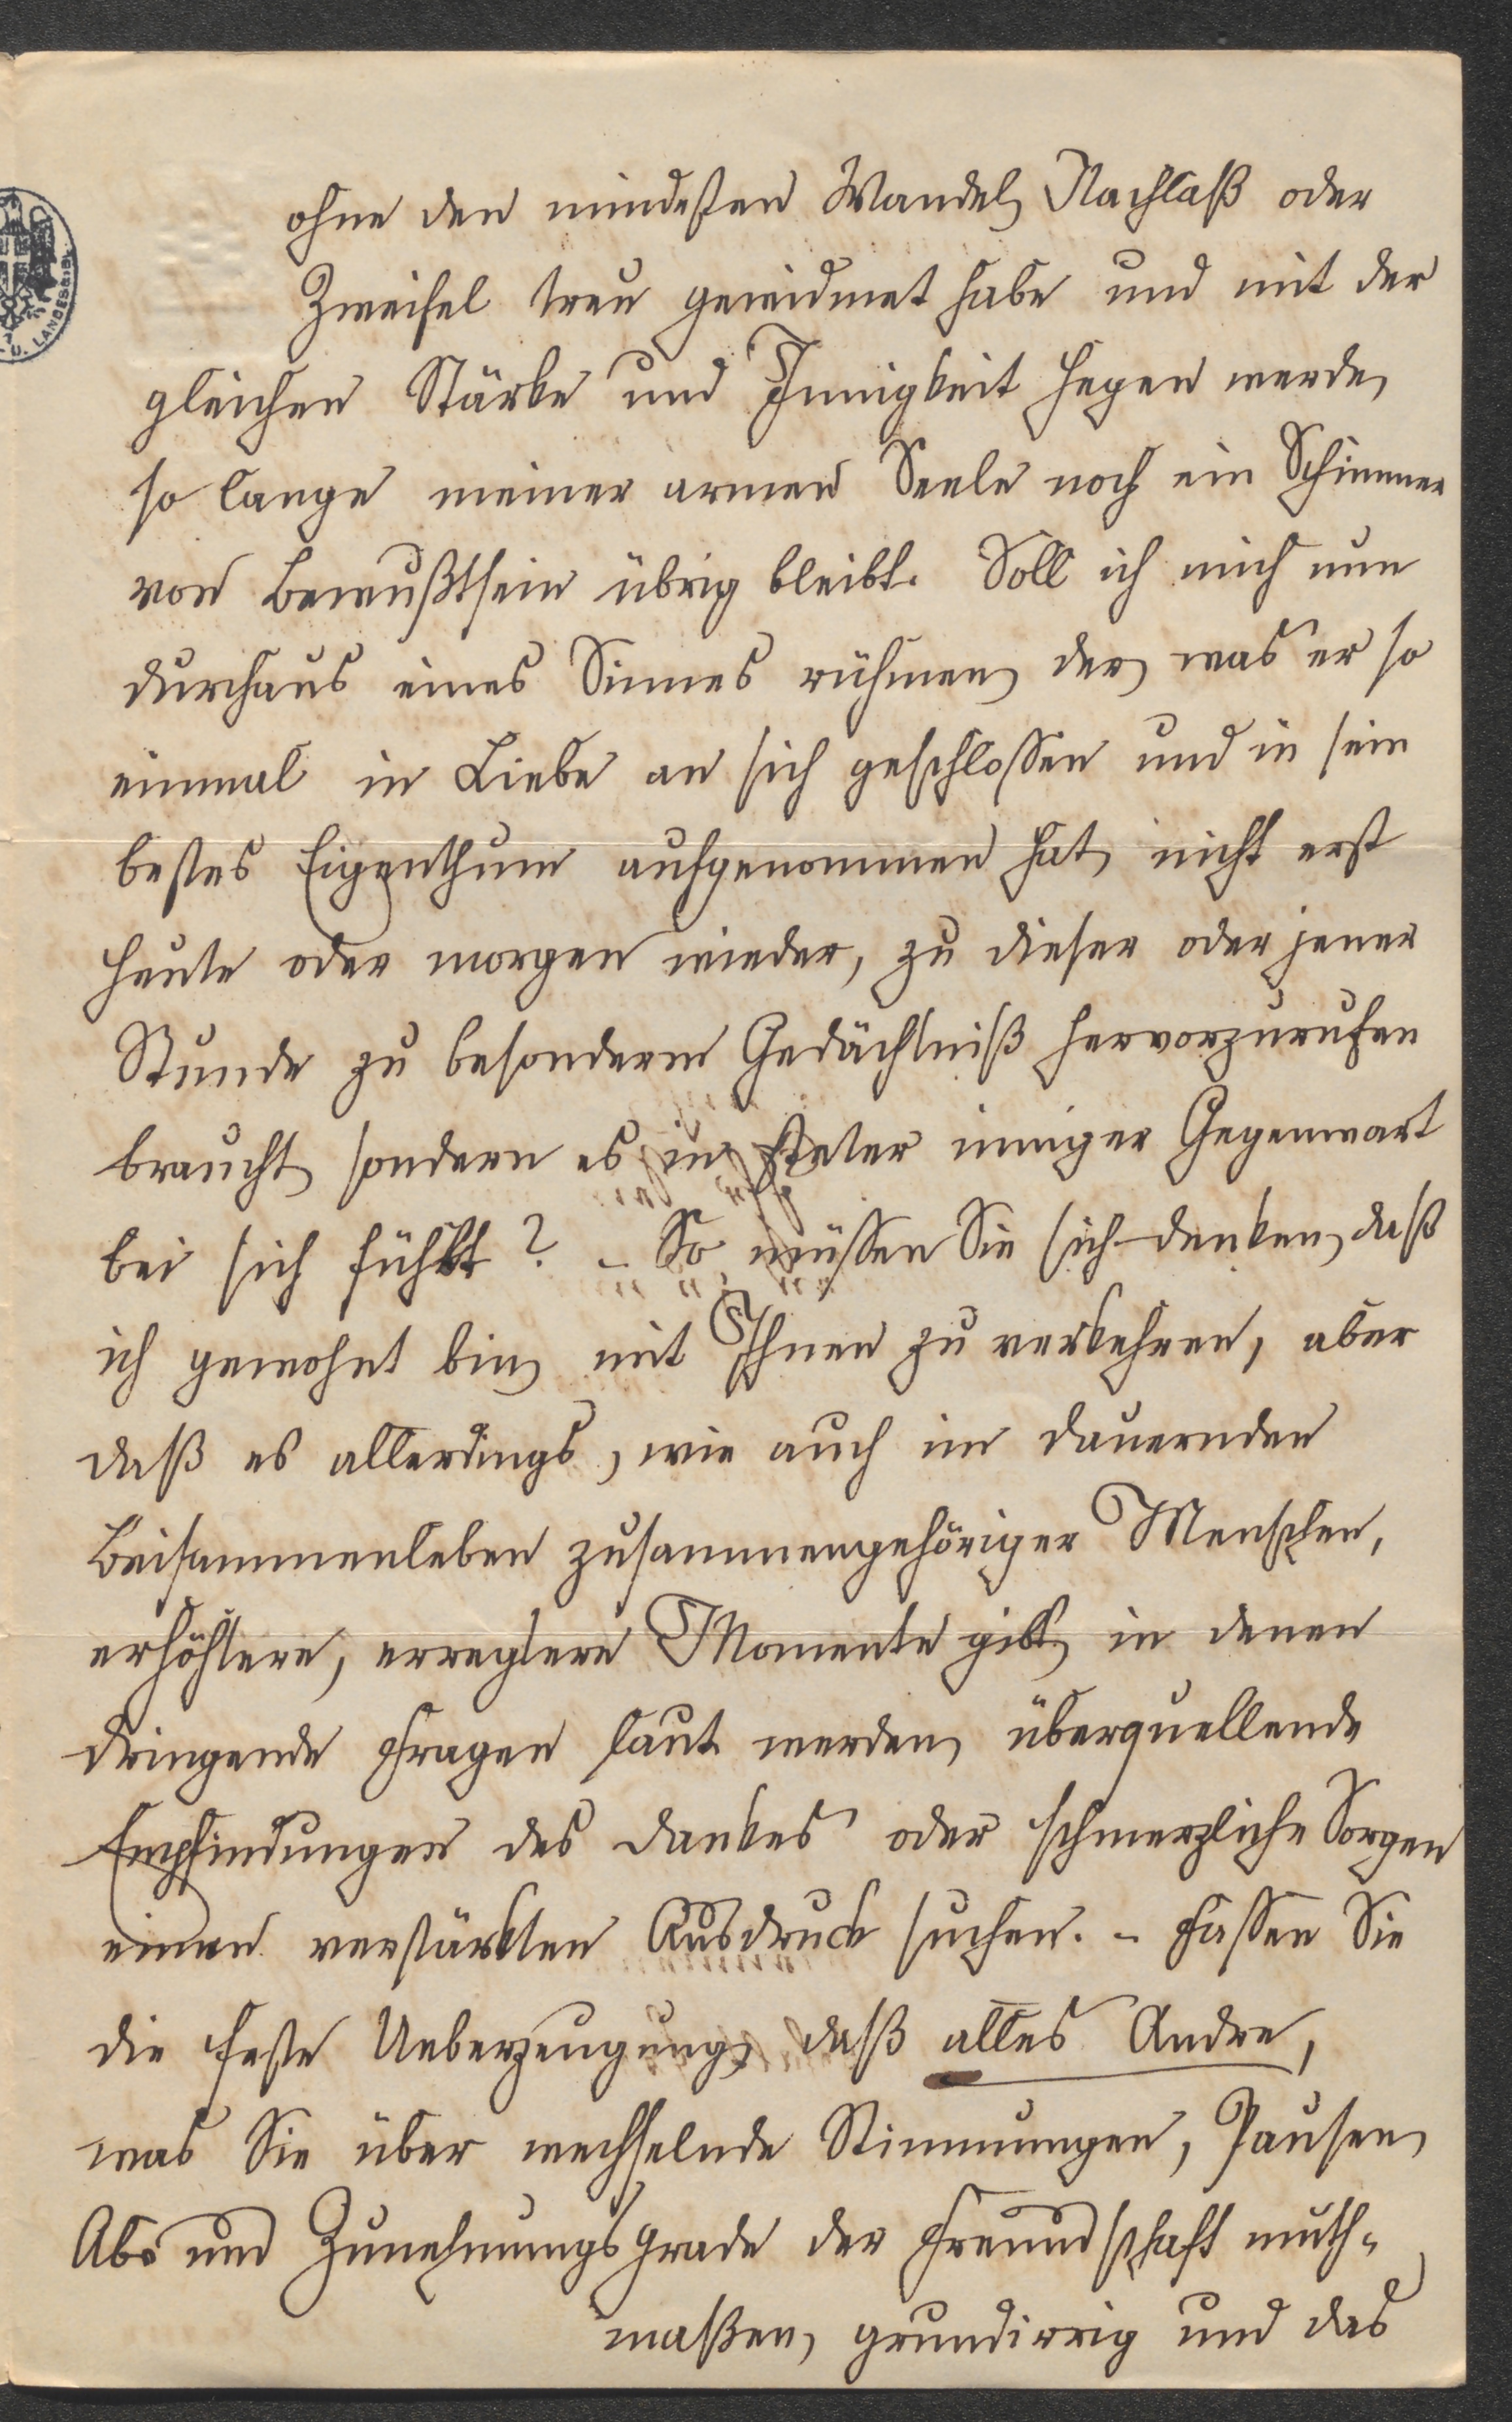 ohne den mindesten Wandel, Nachlaß oder
Zweifel treu gewidmet habe und mit der
gleichen Stärke und Innigkeit hegen werde,
so lange meiner armen Seele noch ein Schimmer
von Bewußtsein übrig bleibt. Soll ich mich nun
durchaus eines Sinnes rühmen, der, was er so
einmal in Liebe an sich geschlossen und in sein
bestes Eigenthum aufgenommen hat, nicht erst
heute oder morgen wieder, zu dieser oder jener
Stunde zu besonderm Gedächtniß hervorzurufen
braucht, sondern es in steter inniger Gegenwart
bei sich fühlt? – So müssen Sie sich denken, daß
ich gewohnt bin, mit Ihnen zu verkehren, aber
daß es allerdings, wie auch im dauernden
Beisammenleben zusammengehöriger Menschen,
erhöhtere, erregtere Momente gibt, in denen
dringende Fragen laut werden, überquellende
Empfindungen des Dankes oder schmerzliche Sorgen
einen verstärkten Ausdruck suchen. – Fassen Sie
die feste Ueberzeugung, daß alles Andre,
was Sie über wechselnde Stimmungen, Pausen,
Ab- und Zunehmungsgrade der Freundschaft muth-
maßen, grundirrig und das
U. LANDESBIBL.